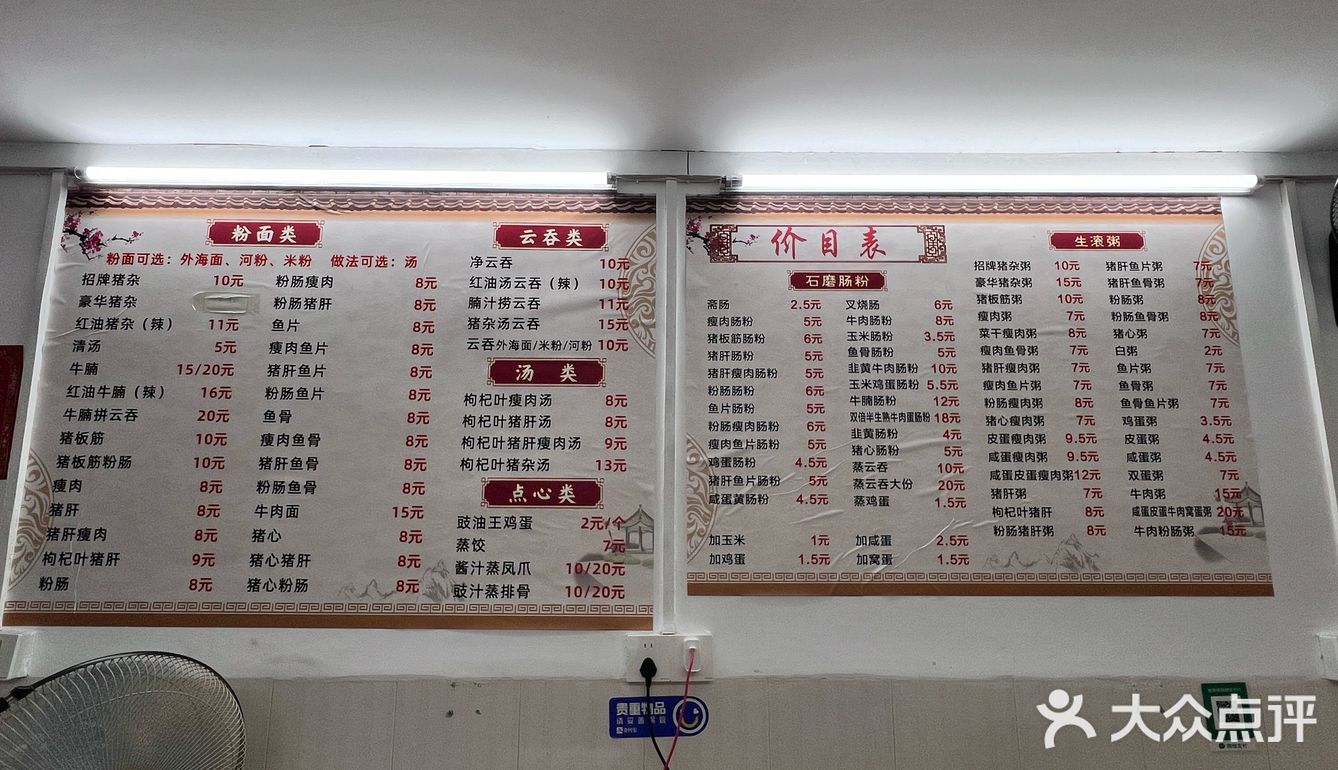 粉面类
粉面可选：外海面、河粉、米粉 做法可选：汤
招牌猪杂 10元
豪华猪杂
红油猪杂（辣） 11元
清汤 5元
牛腩 15/20元
红油牛腩（辣） 16元
牛腩拼云吞 20元
猪板筋 10元
猪板筋粉肠 10元
瘦肉 8元
猪肝 8元
猪肝瘦肉 8元
枸杞叶猪肝 9元
粉肠 8元
粉肠瘦肉 8元
粉肠猪肝 8元
鱼片 8元
瘦肉鱼片 8元
猪肝鱼片 8元
粉肠鱼片 8元
鱼骨 8元
瘦肉鱼骨 8元
猪肝鱼骨 8元
粉肠鱼骨 8元
牛肉面 15元
猪心 8元
猪心猪肝 8元
猪心粉肠 8元
云吞类
净云吞 10元
红油汤云吞（辣） 10元
腩汁捞云吞 11元
猪杂汤云吞 15元
云吞外海面/米粉/河粉 10元
汤 类
枸杞叶瘦肉汤 8元
枸杞叶猪肝汤 8元
枸杞叶猪肝瘦肉汤 9元
枸杞叶猪杂汤 13元
点心类
豉油王鸡蛋 2元/个
蒸饺 7元
酱汁蒸凤爪 10/20元
豉汁蒸排骨 10/20元
价目表
石磨肠粉
斋肠 2.5元
瘦肉肠粉 5元
猪板筋肠粉 6元
猪肝肠粉 5元
猪肝瘦肉肠粉 5元
粉肠肠粉 6元
鱼片肠粉 5元
粉肠瘦肉肠粉 6元
瘦肉鱼片肠粉 5元
鸡蛋肠粉 4.5元
猪肝鱼片肠粉 5元
咸蛋黄肠粉 4.5元
加玉米 1元
加鸡蛋 1.5元
叉烧肠 6元
牛肉肠粉 8元
玉米肠粉 3.5元
鱼骨肠粉 5元
韭黄牛肉肠粉 10元
玉米鸡蛋肠粉 5.5元
牛腩肠粉 12元
双倍半生熟牛肉蛋肠粉 18元
韭黄肠粉 4元
猪心肠粉 5元
蒸云吞 10元
蒸云吞大份 20元
蒸鸡蛋 1.5元
加咸蛋 2.5元
加窝蛋 1.5元
生滚粥
招牌猪杂粥 10元
豪华猪杂粥 15元
猪板筋粥 10元
瘦肉粥 7元
菜干瘦肉粥 8元
瘦肉鱼骨粥 7元
猪肝瘦肉粥 7元
瘦肉鱼片粥 7元
粉肠瘦肉粥 8元
猪心瘦肉粥 7元
皮蛋瘦肉粥 9.5元
咸蛋瘦肉粥 9.5元
咸蛋皮蛋瘦肉粥 12元
猪肝粥 7元
枸杞叶猪肝 8元
粉肠猪肝粥 8元
猪肝鱼片粥 7元
猪肝鱼骨粥 7元
粉肠粥 8元
粉肠鱼骨粥 8元
猪心粥 7元
白粥 2元
鱼片粥 7元
鱼骨粥 7元
鱼骨鱼片粥 7元
鸡蛋粥 3.5元
皮蛋粥 4.5元
咸蛋粥 4.5元
双蛋粥 7元
牛肉粥 15元
咸蛋皮蛋牛肉窝蛋粥 20元
牛肉粉肠粥 15元
贵重物品
请妥善保管
支付宝
大众点评